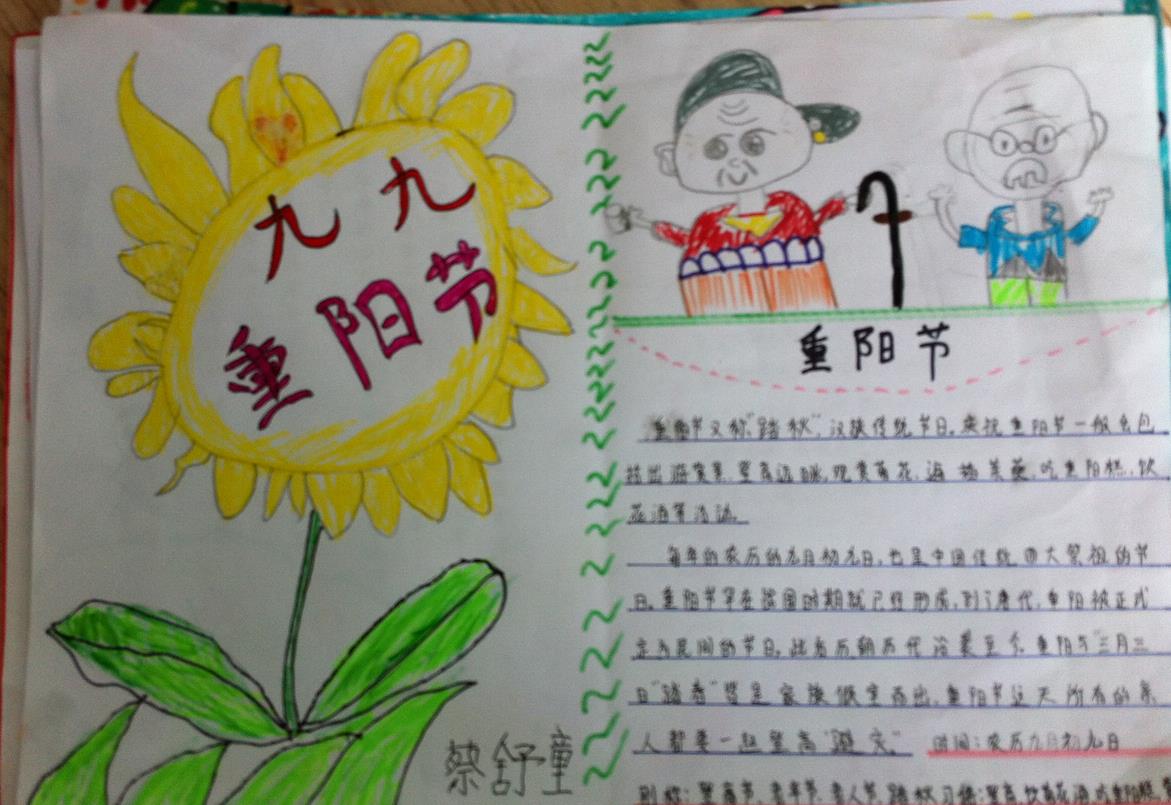 九九
重阳节
蔡舒童
重阳节
重阳节又称"踏秋",汉族传统节日。庆祝重阳节一般会包
括出游赏景、登高远眺、观赏菊花、遍插茱萸、吃重阳糕、饮
花酒等活动。
每年的农历的九月初九日,也是中国传统四大祭祖的节
日。重阳节早在战国时期就已经形成,到了唐代,重阳被正式
定为民间的节日,此后历朝历代沿袭至今。重阳与"三月三
日"踏春"皆是家族倾室而出,重阳节这天所有的亲
人都要一起登高"避灾"。
时间:农历九月初九日
别称:登高节、老年节、老人节、踏秋 习俗:登高 饮菊花酒 吃重阳糕